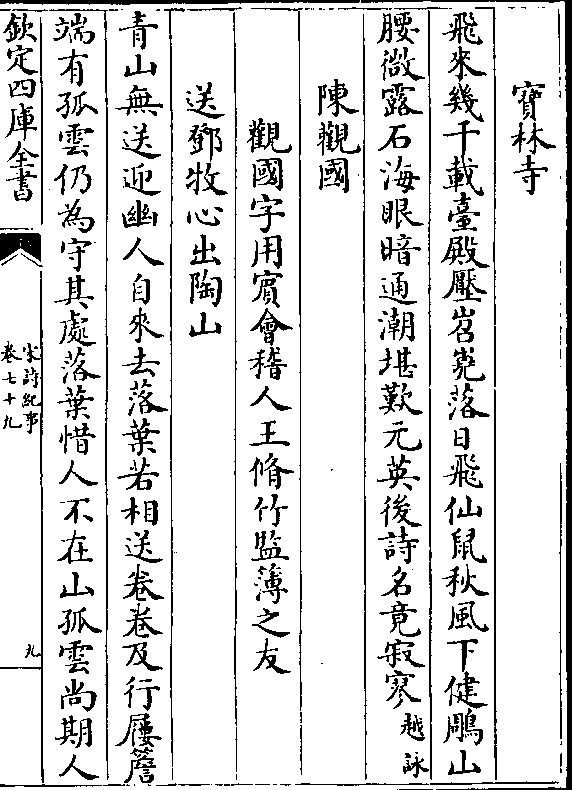 寶林寺
飛來幾千載臺殿壓岧嶤落日飛仙鼠秋風下健鵰山
腰微露石海眼暗通潮堪歎元英後詩名竟寂寥越詠
陳觀國
觀國字用賓會稽人王脩竹監簿之友
送鄧牧心出陶山
青山無送迎幽人自來去落葉若相送卷卷及行屨簷
端有孤雲仍為守其處落葉惜人不在山孤雲尚期人
欽定四庫全書
宋詩紀事
卷七十九
九